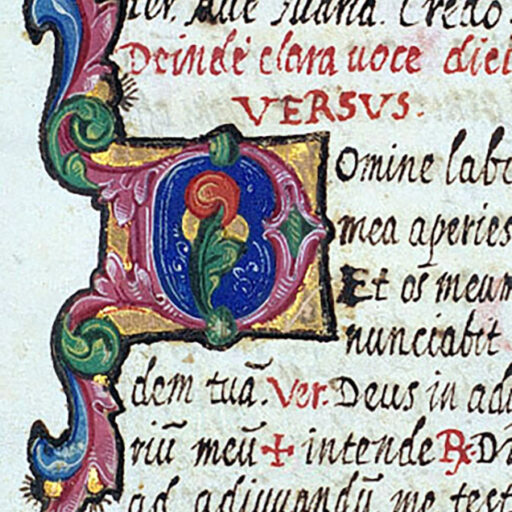 ter. Aue Maria. Credo.
Deinde clara uoce dici
VERSVS.
Domine labi
mea aperies
Et os̄ meum
nunciabit
dem tuā. Ver. Deus in adi
riū meū + intende ℞. Di
ad adiuuandū me fest